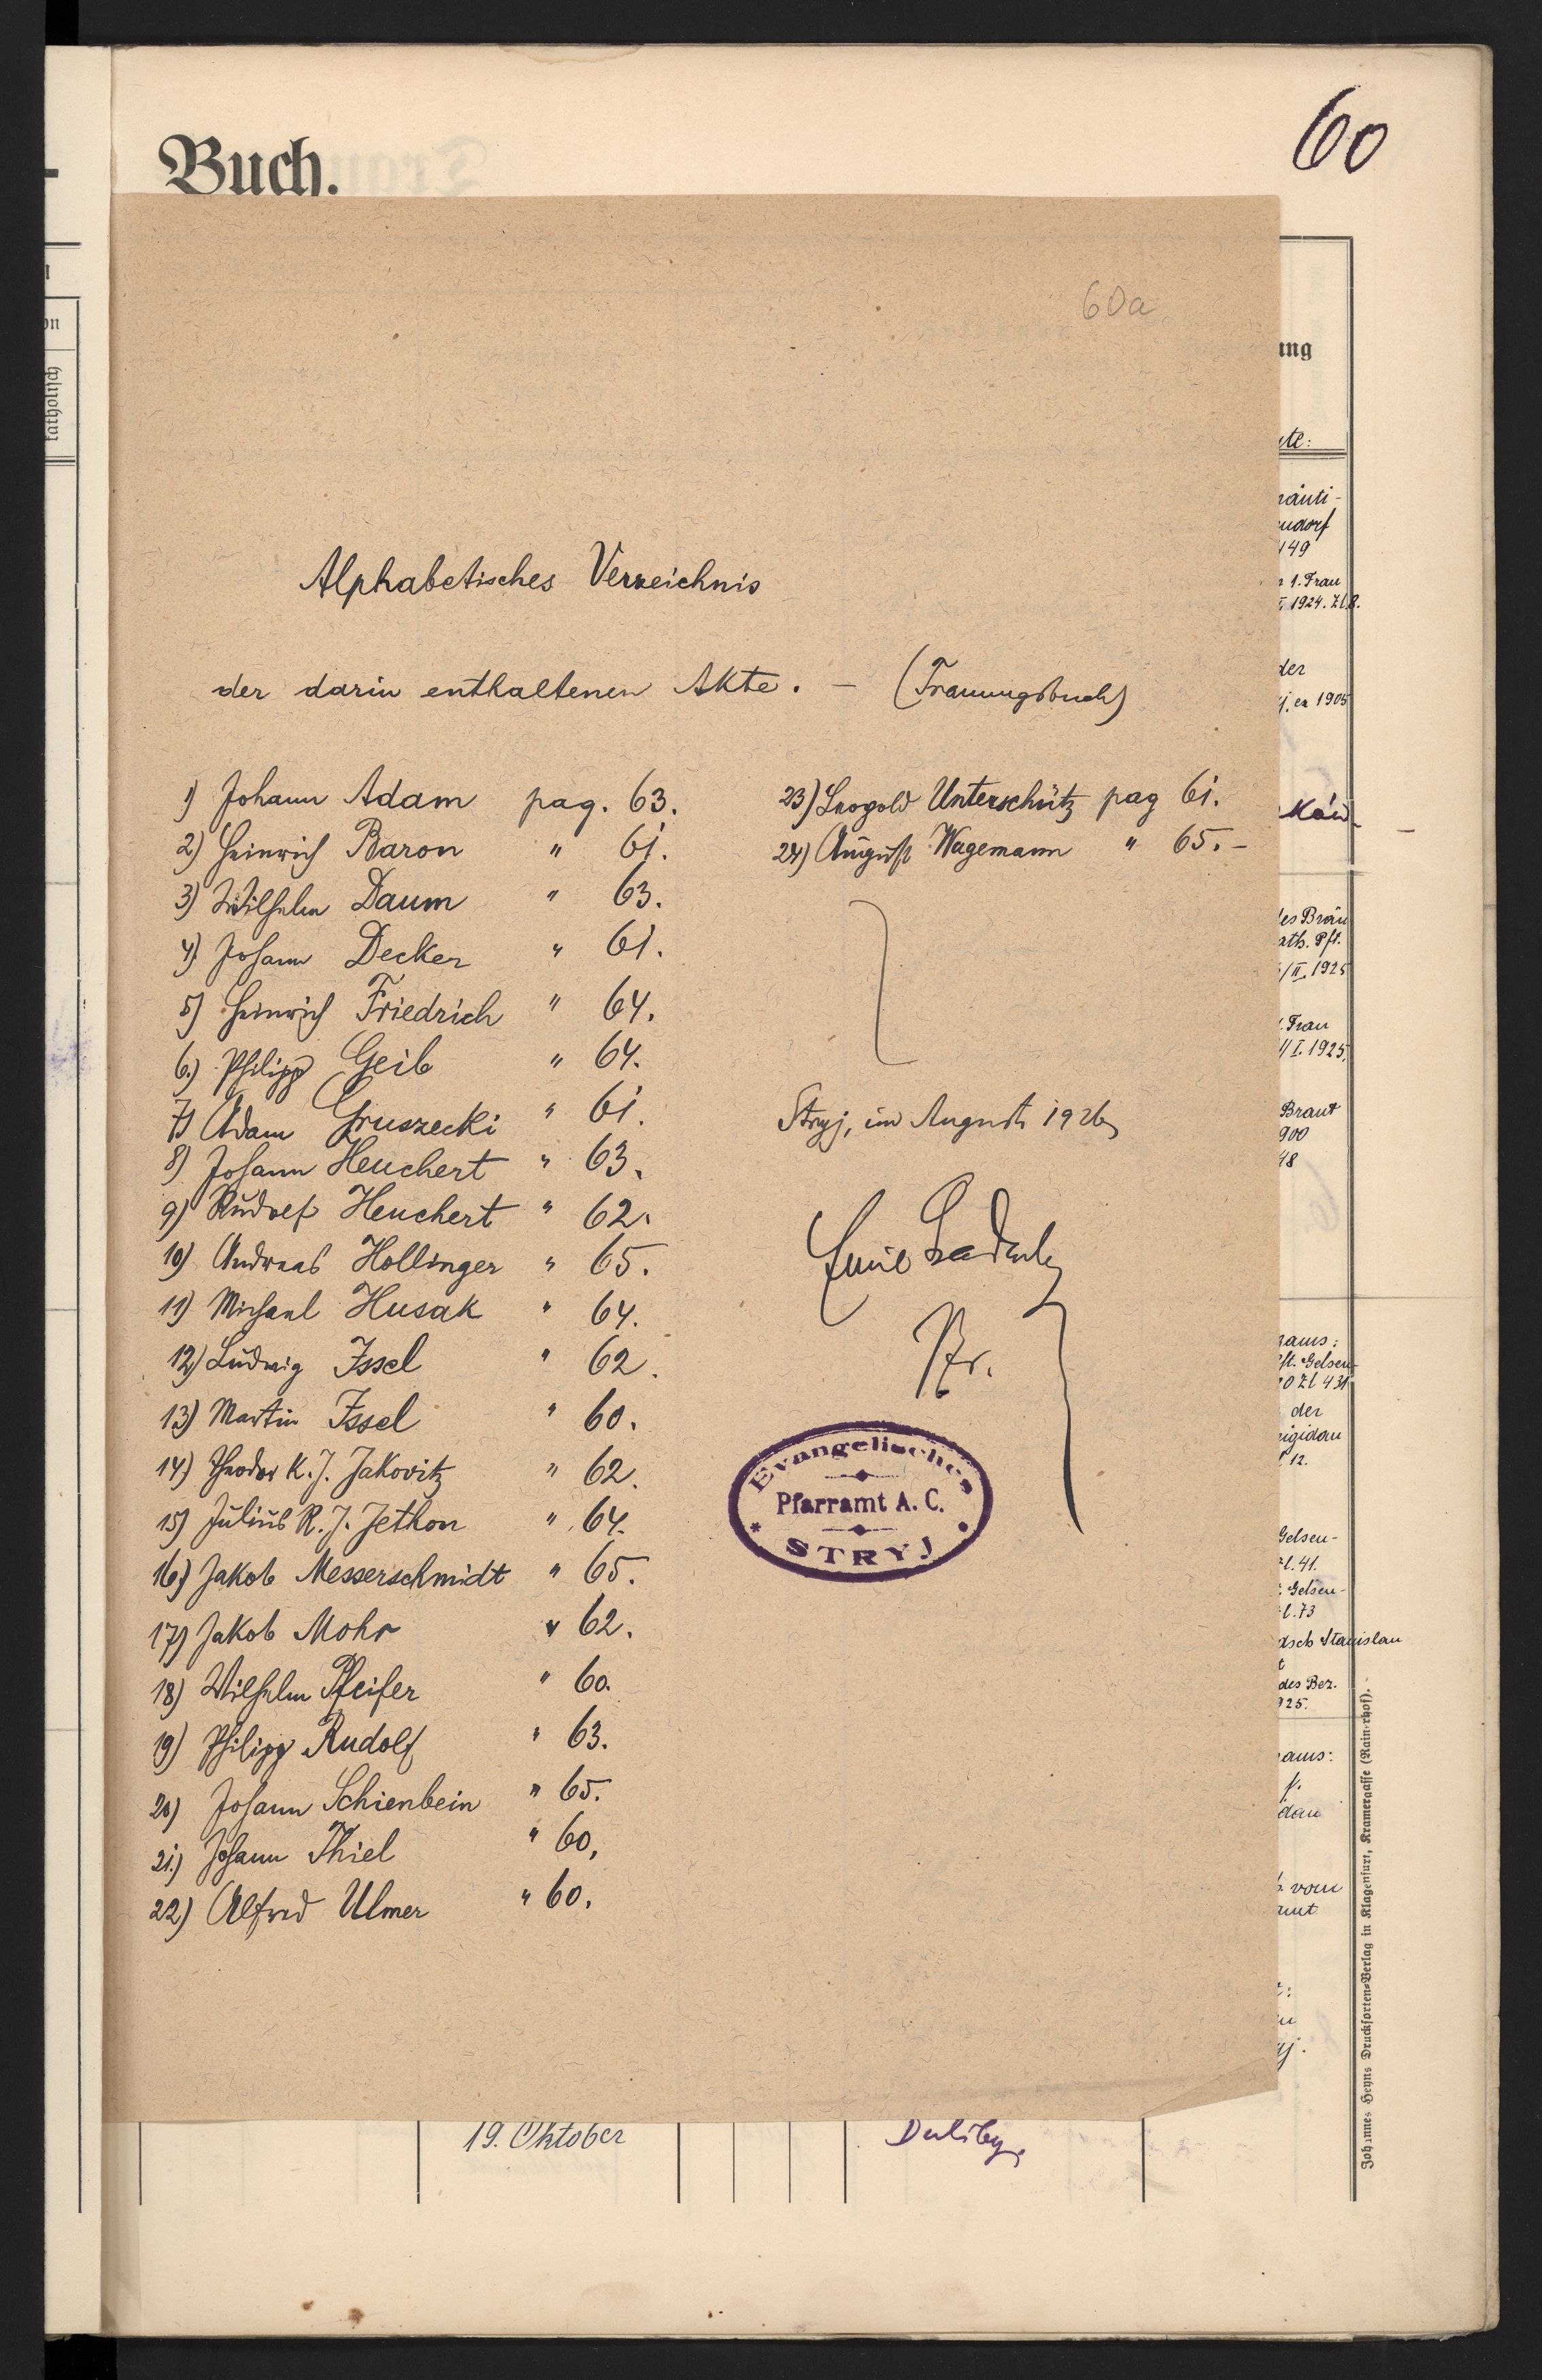 60
Buch.
60a
ung
katholisch
Alphabetisches Verzeichnis
der darin enthaltenen Akte. – (Trauungsbuch)
1) Johann Adam pag. 63.
2) Heinrich Baron " 61.
3) Wilhelm Daum " 63.
4) Johann Decker " 61.
5) Heinrich Friedrich " 64.
6.) Philipp Geib " 64.
7) Adam Gruszecki " 61.
8) Johann Heuchert " 63.
9) Rudolf Heuchert " 62.
10) Andreas Hollinger " 65.
11) Michael Husak " 64.
12) Ludwig Issel " 62.
13) Martin Issel " 60.
14) Theodor K. J. Jakovitz " 62.
15) Julius R. J. Jethon " 64.
16) Jakob Messerschmidt " 65.
17) Jakob Mohr " 62.
18) Wilhelm Pfeifer " 60.
19) Philipp Rudolf " 63.
20) Johann Schienbein " 65.
21.) Johann Thiel " 60,
22) Alfred Ulmer " 60.
23) Leopold Unterschütz pag 61.
24) August Wagemann " 65. –
Stryj, im August 1926
Emil Ladenberger
Pfr.
Evangelisches
Pfarramt A. C.
STRYJ
1. Frau
1924. Zl. 8.
der
ex 1905
des Bräu
ath. Pft.
/II. 1925
Frau
/I. 1925.
Braut
900
48
Pft. Gelsen-
Zl 431
der
12.
Gelsen-
Zl. 41.
Gelsen-
Zl. 73
Stanislau
des Bez.
925.
vom
amt
19. Oktober
Duliby,
Johannes Heyns Drucksorten-Verlag in Klagenfurt, Kramergasse (Rainerhof).